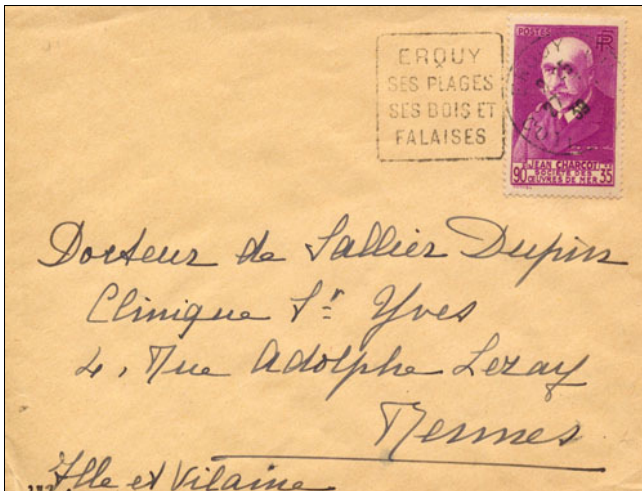 POSTES RF
ERQUY
SES PLAGES
SES BOIS ET
FALAISES
JEAN CHARCOT
90 SOCIÉTÉ DES 35
ŒUVRES DE MER
Docteur de Sallier Dupin
Clinique St Yves
4, Rue Adolphe Leray
Rennes
Ille et Vilaine